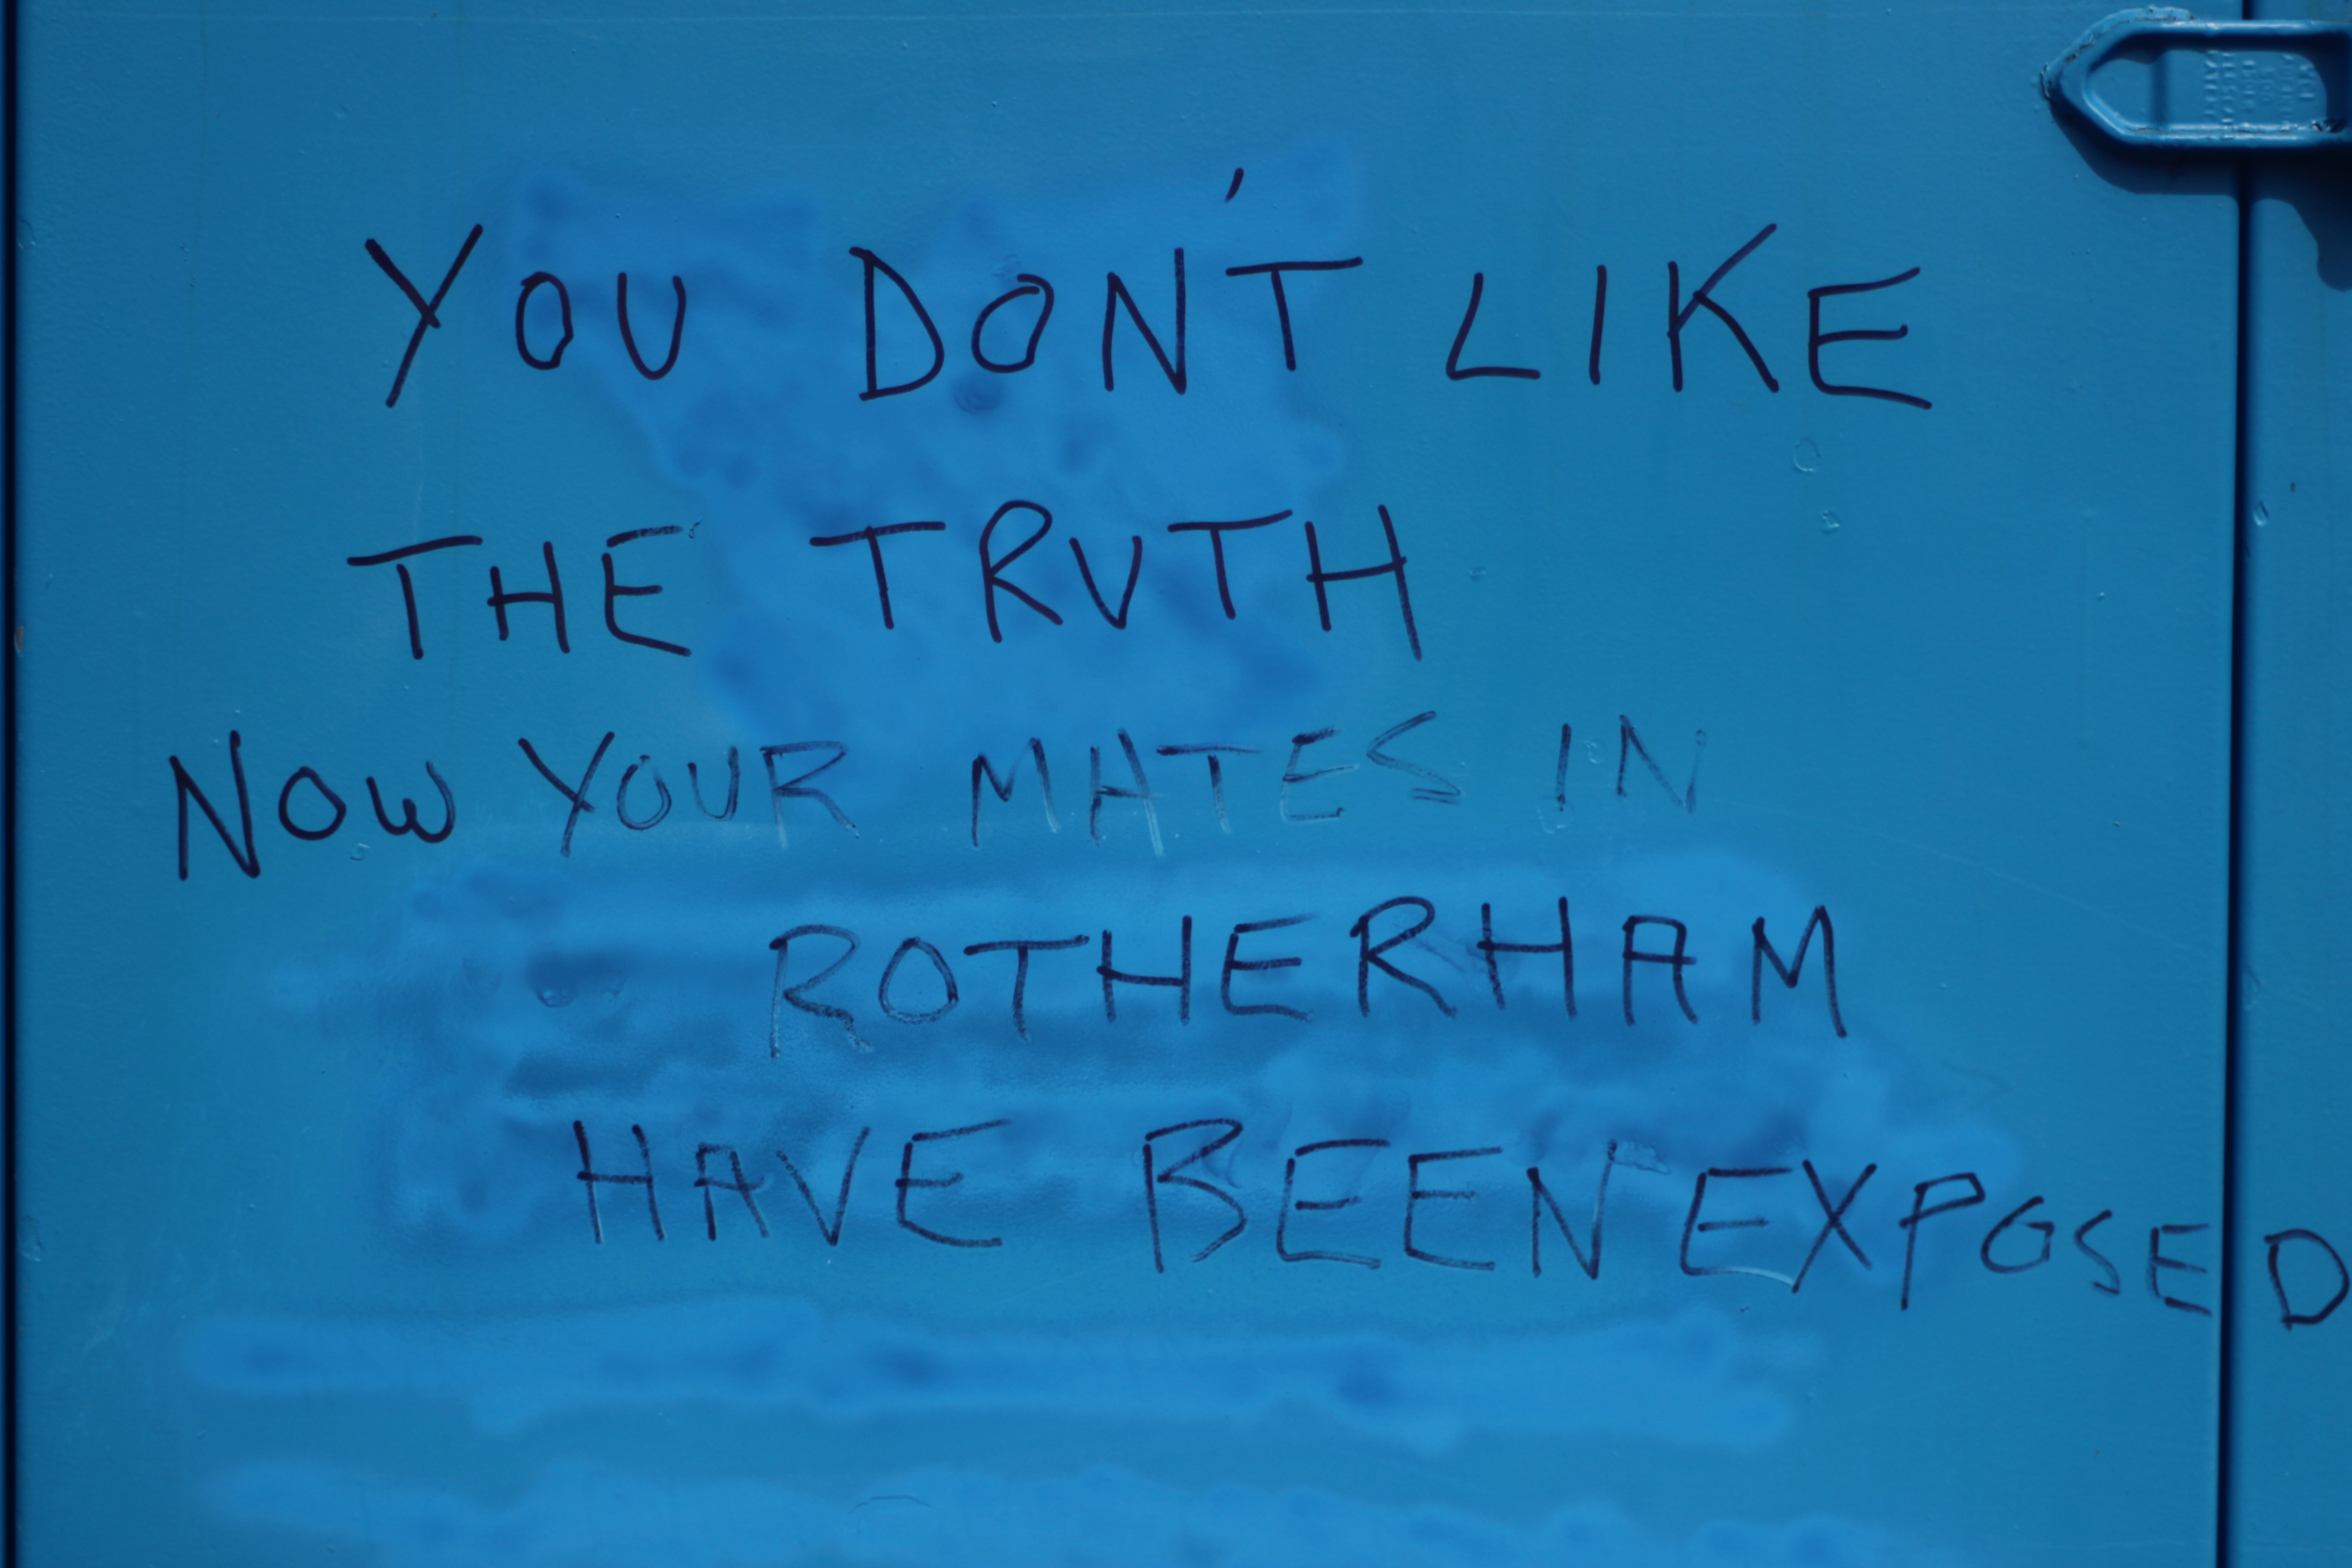 YOU DON'T LIKE
THE TRUTH
NOW YOUR MATES IN
ROTHERHAM
HAVE BEEN EXPOSED